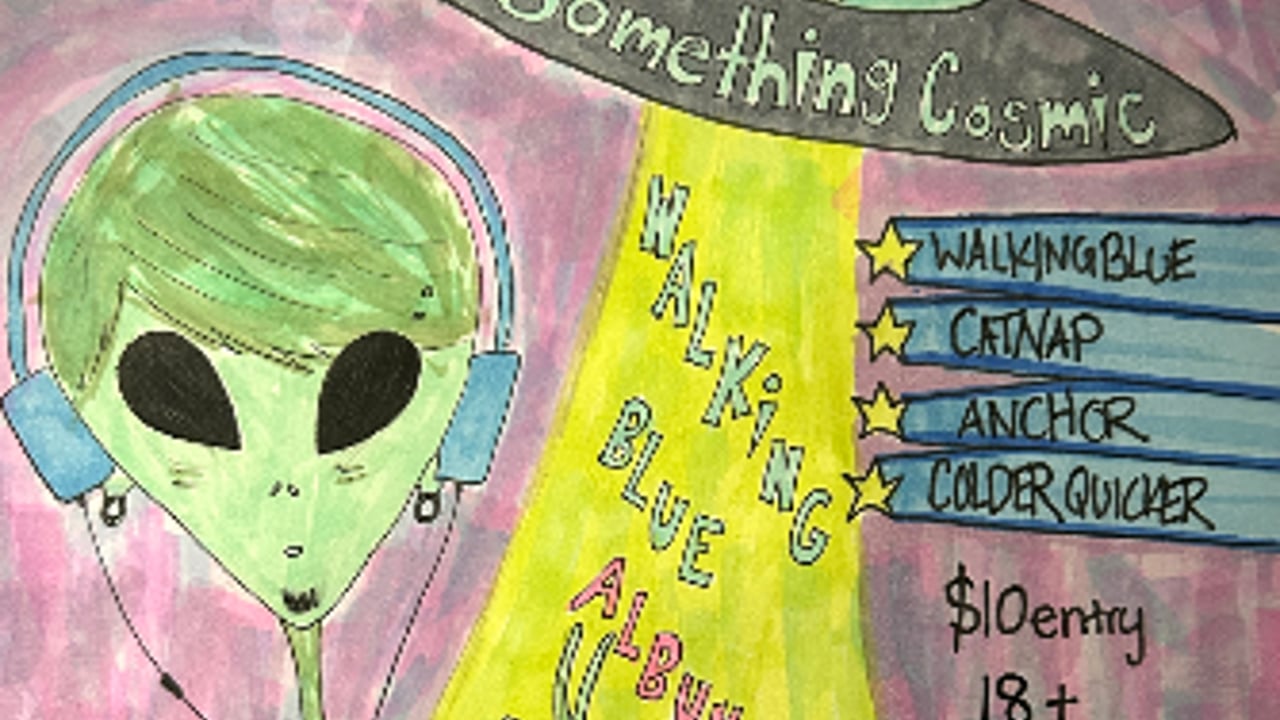 Something Cosmic
WALKiNG
BLUE
ALBUM
WALKINGBLUE
CATNAP
ANCHOR
COLDER QUICKER
$10 entry
18+